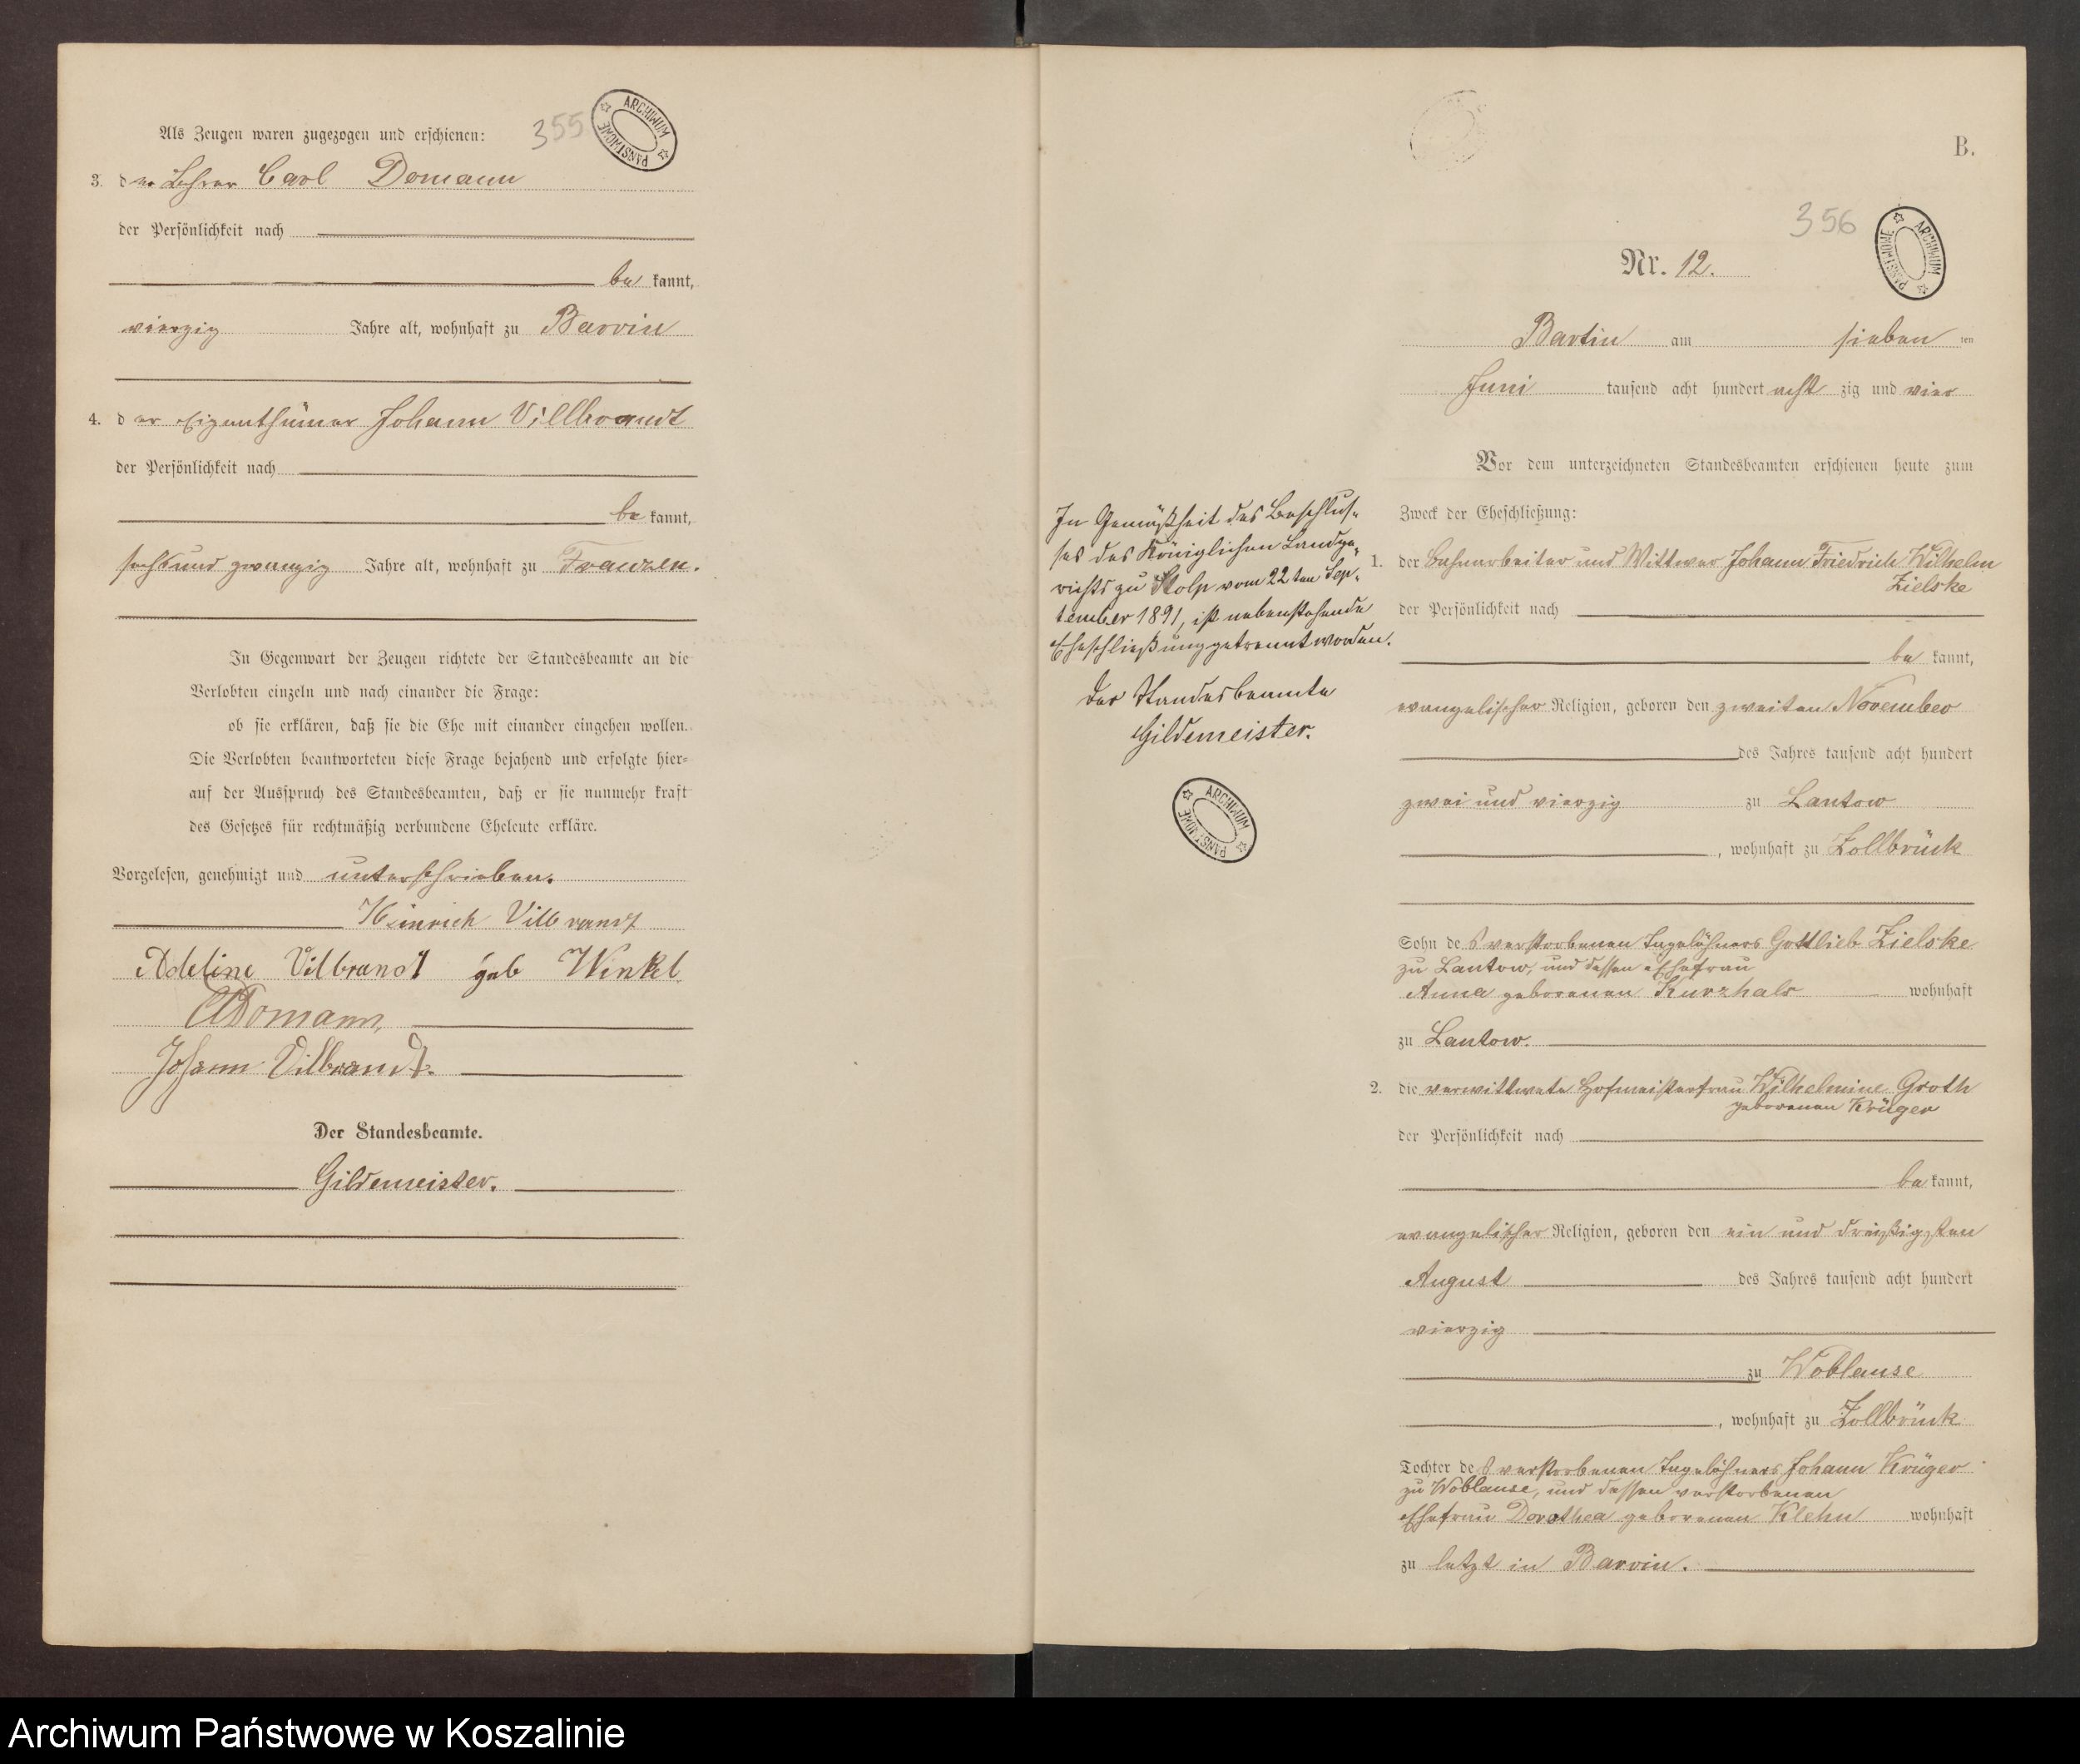 355
ARCHIWUM PAŃSTWOWE
Als Zeugen waren zugezogen und erschienen:
3. der Lehrer Carl Domann
der Persönlichkeit nach
be kannt,
vierzig Jahre alt, wohnhaft zu Barvin
4. der Eigenthümer Johann Villbrandt
der Persönlichkeit nach
be kannt,
sechsund zwanzig Jahre alt, wohnhaft zu Franzen.
In Gegenwart der Zeugen richtete der Standesbeamte an die
Verlobten einzeln und nach einander die Frage:
ob sie erklären, daß sie die Ehe mit einander eingehen wollen.
Die Verlobten beantworteten diese Frage bejahend und erfolgte hier-
auf der Ausspruch des Standesbeamten, daß er sie nunmehr kraft
des Gesetzes für rechtmäßig verbundene Eheleute erkläre.
Vorgelesen, genehmigt und unterschrieben.
Heinrich Vilbrandt
Adeline Vilbrandt geb Winkel
CDomann,
Johann Vilbrandt.
Der Standesbeamte.
Gildemeister.
B.
356
ARCHIWUM PAŃSTWOWE
Nr. 12.
Bartin am sieben ten
Juni tausend acht hundert acht zig und vier
Vor dem unterzeichneten Standesbeamten erschienen heute zum
Zweck der Eheschließung:
1. der Bahnarbeiter und Wittwer Johann Friedrich Wilhelm
Zielske
der Persönlichkeit nach
be kannt,
evangelischer Religion, geboren den zweiten November
des Jahres tausend acht hundert
zwei und vierzig zu Lantow
, wohnhaft zu Zollbrück
Sohn des verstorbenen Tagelöhners Gottlieb Zielske
zu Lantow, und dessen Ehefrau
Anna geborenen Kurzhals wohnhaft
zu Lantow.
2. die verwittwete Hofmeisterfrau Wilhelmine Groth
geborenen Krüger
der Persönlichkeit nach
be kannt,
evangelischer Religion, geboren den ein und dreißigsten
August des Jahres tausend acht hundert
vierzig
zu Woblanse
, wohnhaft zu Zollbrück
Tochter des verstorbenen Tagelöhners Johann Krüger
zu Woblanse, und dessen verstorbenen
Ehefrau Dorothea geborenen Klehn wohnhaft
zu letzt in Barvin.
In Gemäßheit des Beschlus-
ses des Königlichen Landge-
richts zu Stolp vom 22ten Sep-
tember 1891, ist nebenstehende
Eheschließung getrennt worden.
Der Standesbeamte
Gildemeister.
ARCHIWUM PAŃSTWOWE
Archiwum Państwowe w Koszalinie